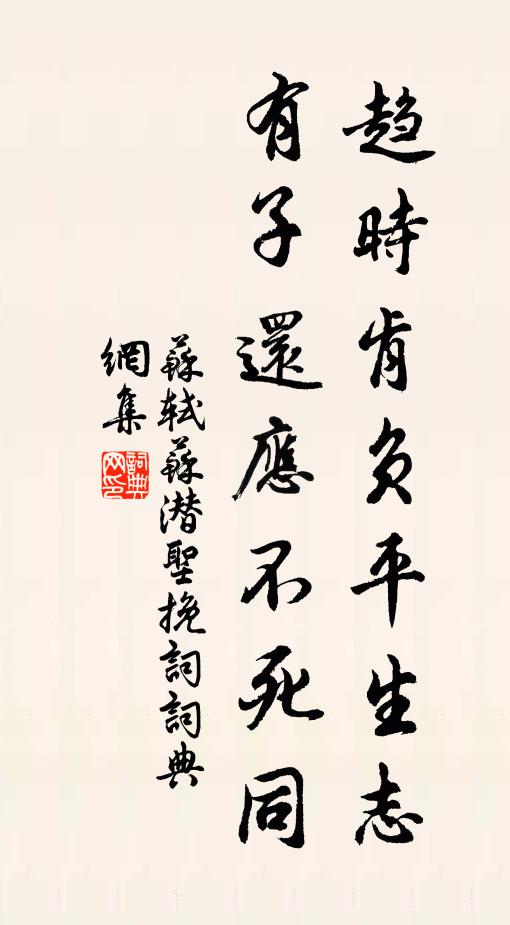 趨時肯负平生志
有子還應不死同
蘇軾蘇潜聖挽詞詞典
網集
詞典
网印